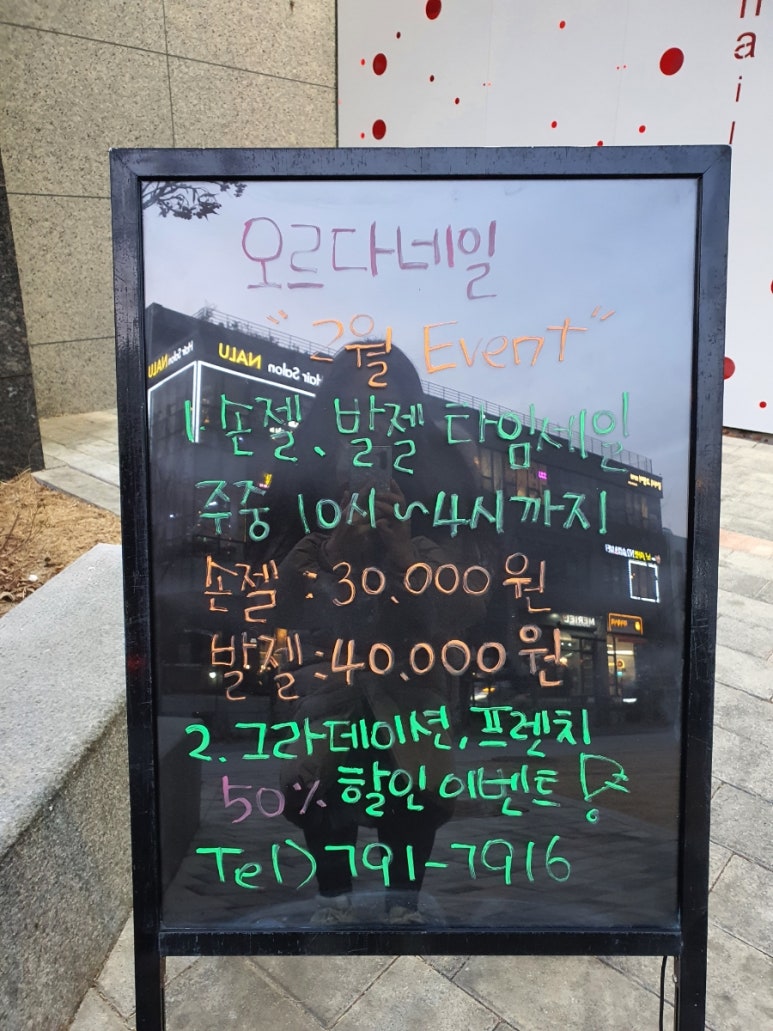 nail
오르다네일
"2월 Event"
1. 손젤、발젤 타임세일
주중 10시~4시까지
손젤 : 30.000원
발젤 : 40.000원
2. 그라데이션, 프렌치
50% 할인 이벤트!
Tel) 791-7916
Hair Salon NALU
NALU Hair Salon
MERIEL